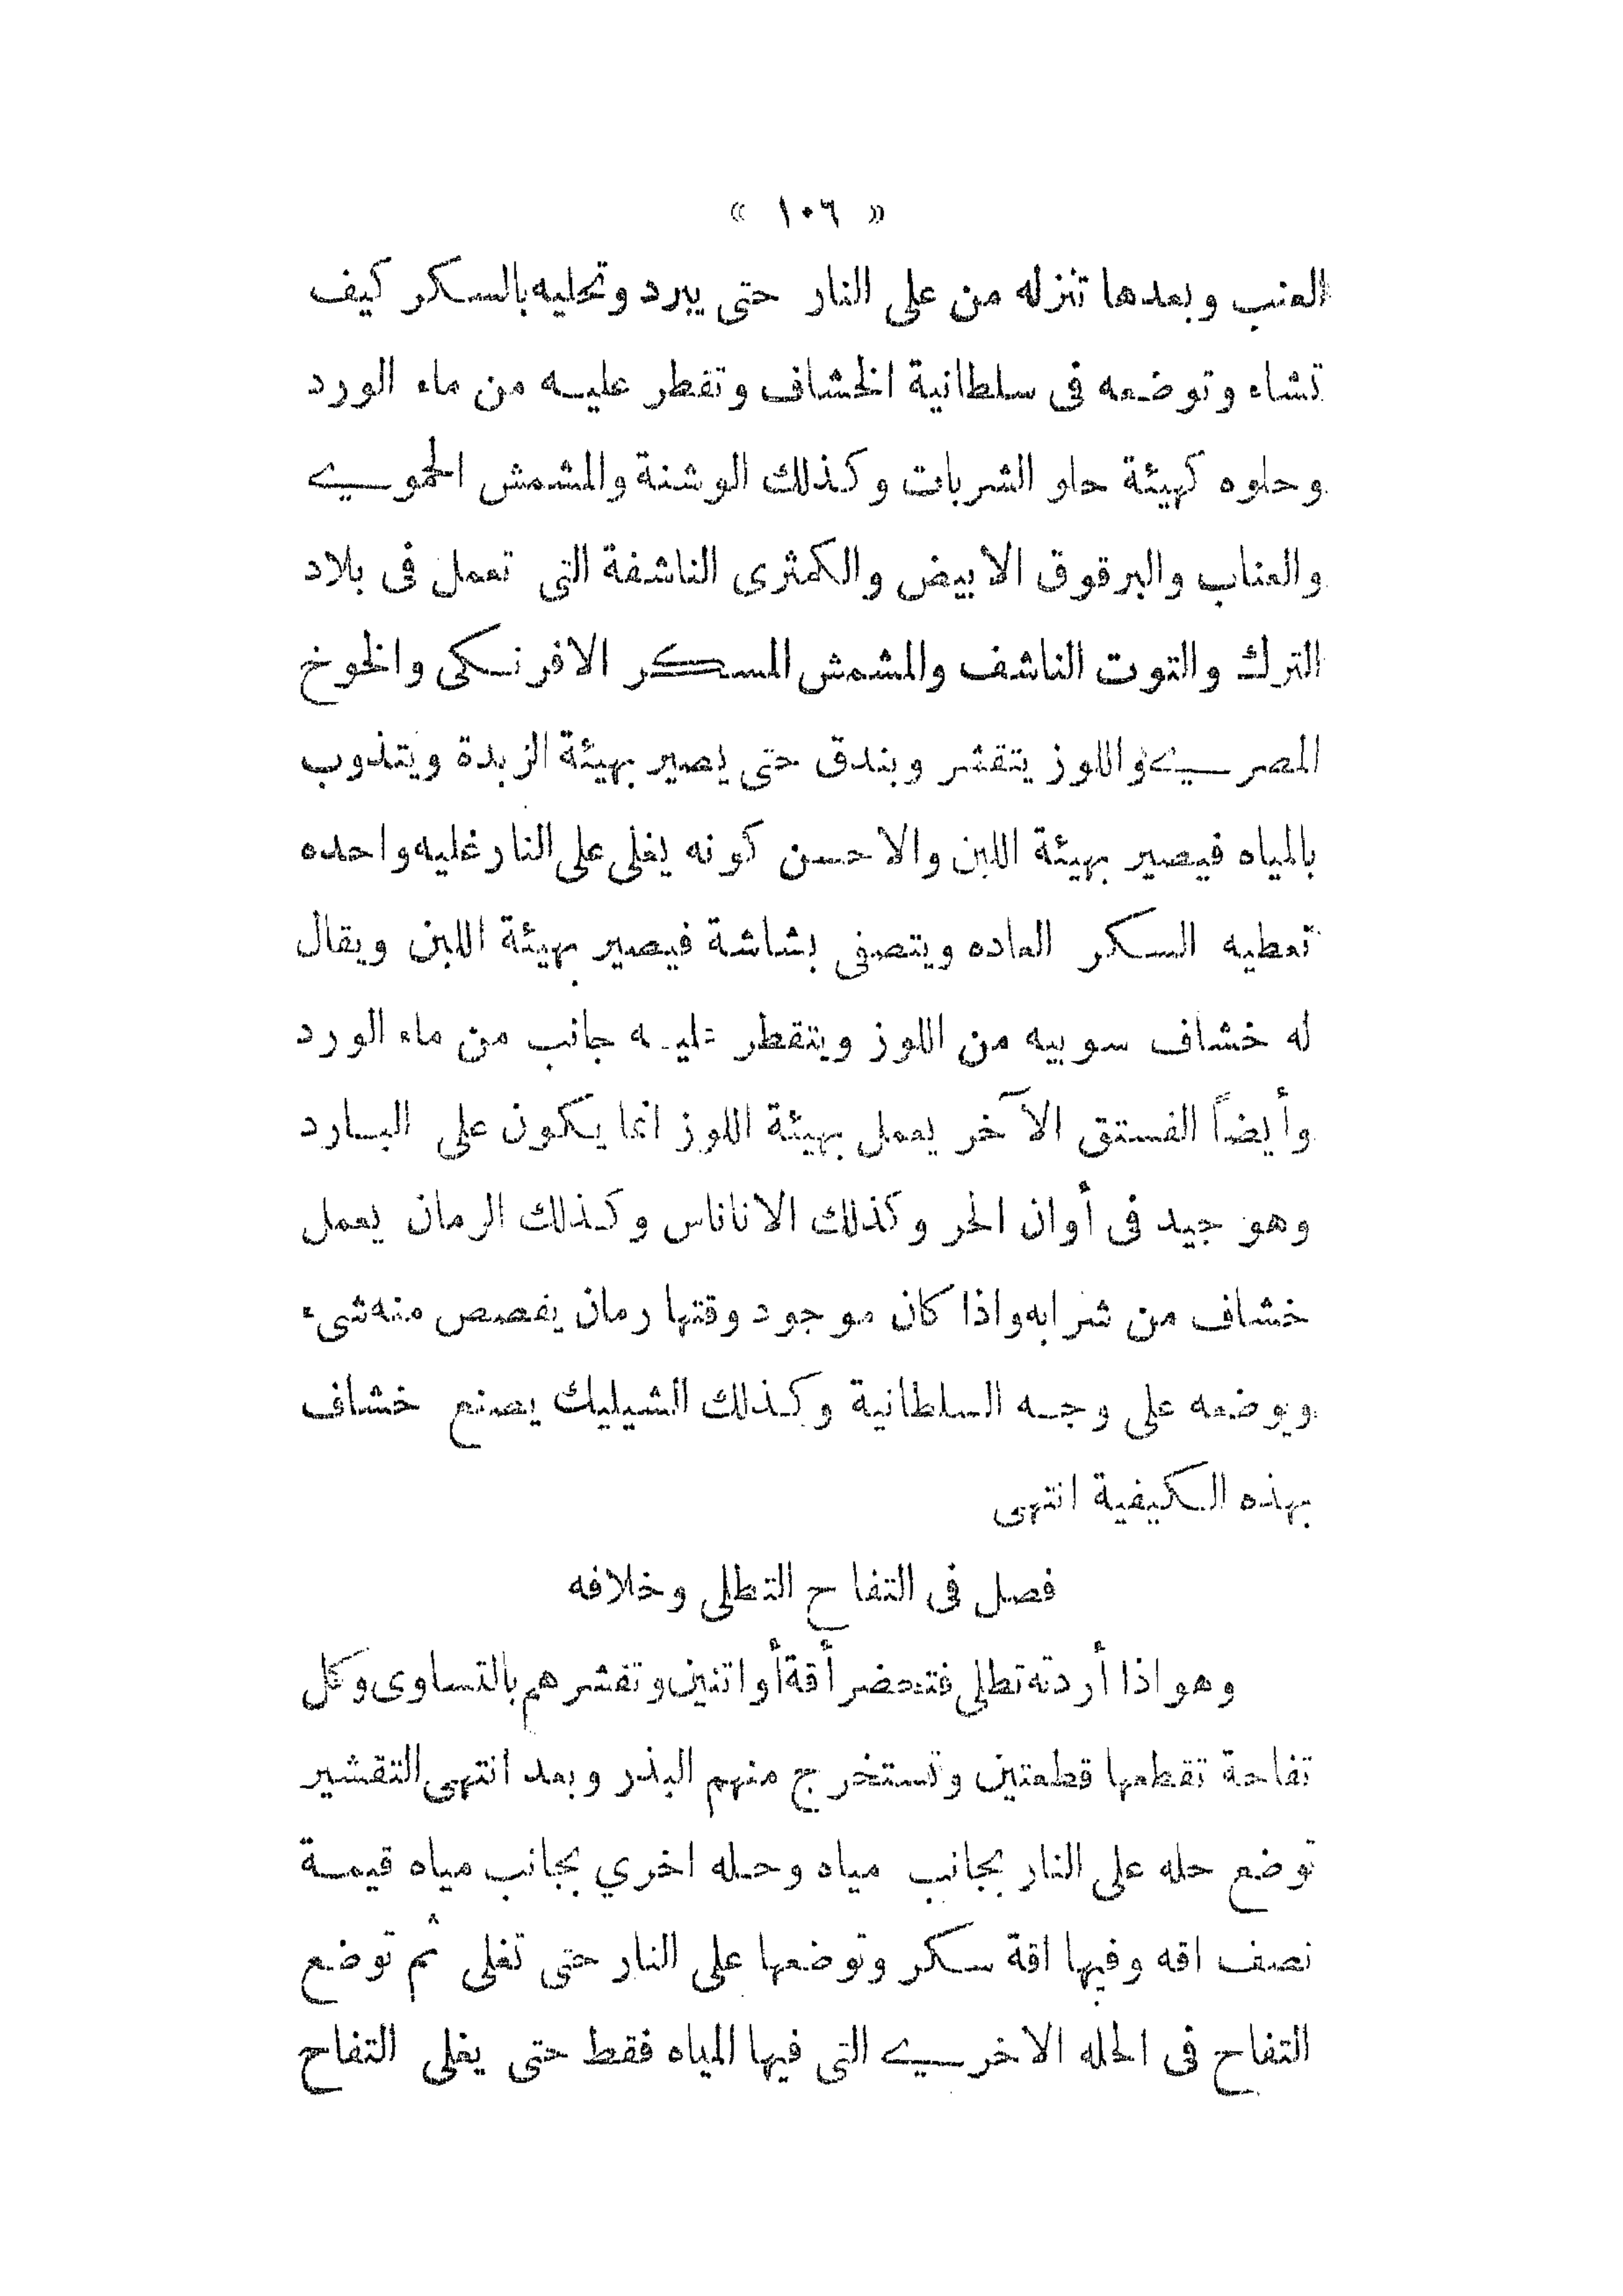 « ١٠٦ »
العنب وبعدها تنزله من على النار حتى يبرد وتحليه بالسكر كيف
تشاء وتوضعه فى سلطانية الخشاف وتقطر عليه من ماء الورد
وحلوه كهيئة حلو الشربات وكذلك الوشنة والمشمش الحموي
والعناب والبرقوق الابيض والكمثرى الناشفة التى تعمل فى بلاد
الترك والتوت الناشف والمشمش المسكر الافرنكى والخوخ
المصري واللوز يتقشر ويندق حتى يصير بهيئة الزبدة ويتذوب
بالمياه فيصير بهيئة اللبن والاحسن كونه يغلى على النار غليه واحده
تعطيه السكر العاده ويتصفى بشاشة فيصير بهيئة اللبن ويقال
له خشاف سوبيه من اللوز ويتقطر عليه جانب من ماء الورد
وأيضاً الفستق الآخر يعمل بهيئة اللوز انما يكون على البارد
وهو جيد فى أوان الحر وكذلك الاناناس وكذلك الرمان يعمل
خشاف من شرابه واذا كان موجود وقتها رمان يفصص منه شىء
ويوضعه على وجه السلطانية وكذلك الشيليك يصنع خشاف
بهذه الكيفية انتهى
فصل فى التفاح التطلى وخلافه
وهو اذا أردته تطلى فتحضر أقة أو اتنين وتقشرهم بالتساوى وكل
تفاحة تقطعها قطعتين وتستخرج منهم البذر وبعد انتهى التقشير
توضع حله على النار بجانب مياه وحله اخري بجانب مياه قيمة
نصف اقه وفيها اقة سكر وتوضعها على النار حتى تغلى ثم توضع
التفاح فى الحله الاخري التى فيها المياه فقط حتى يغلى التفاح